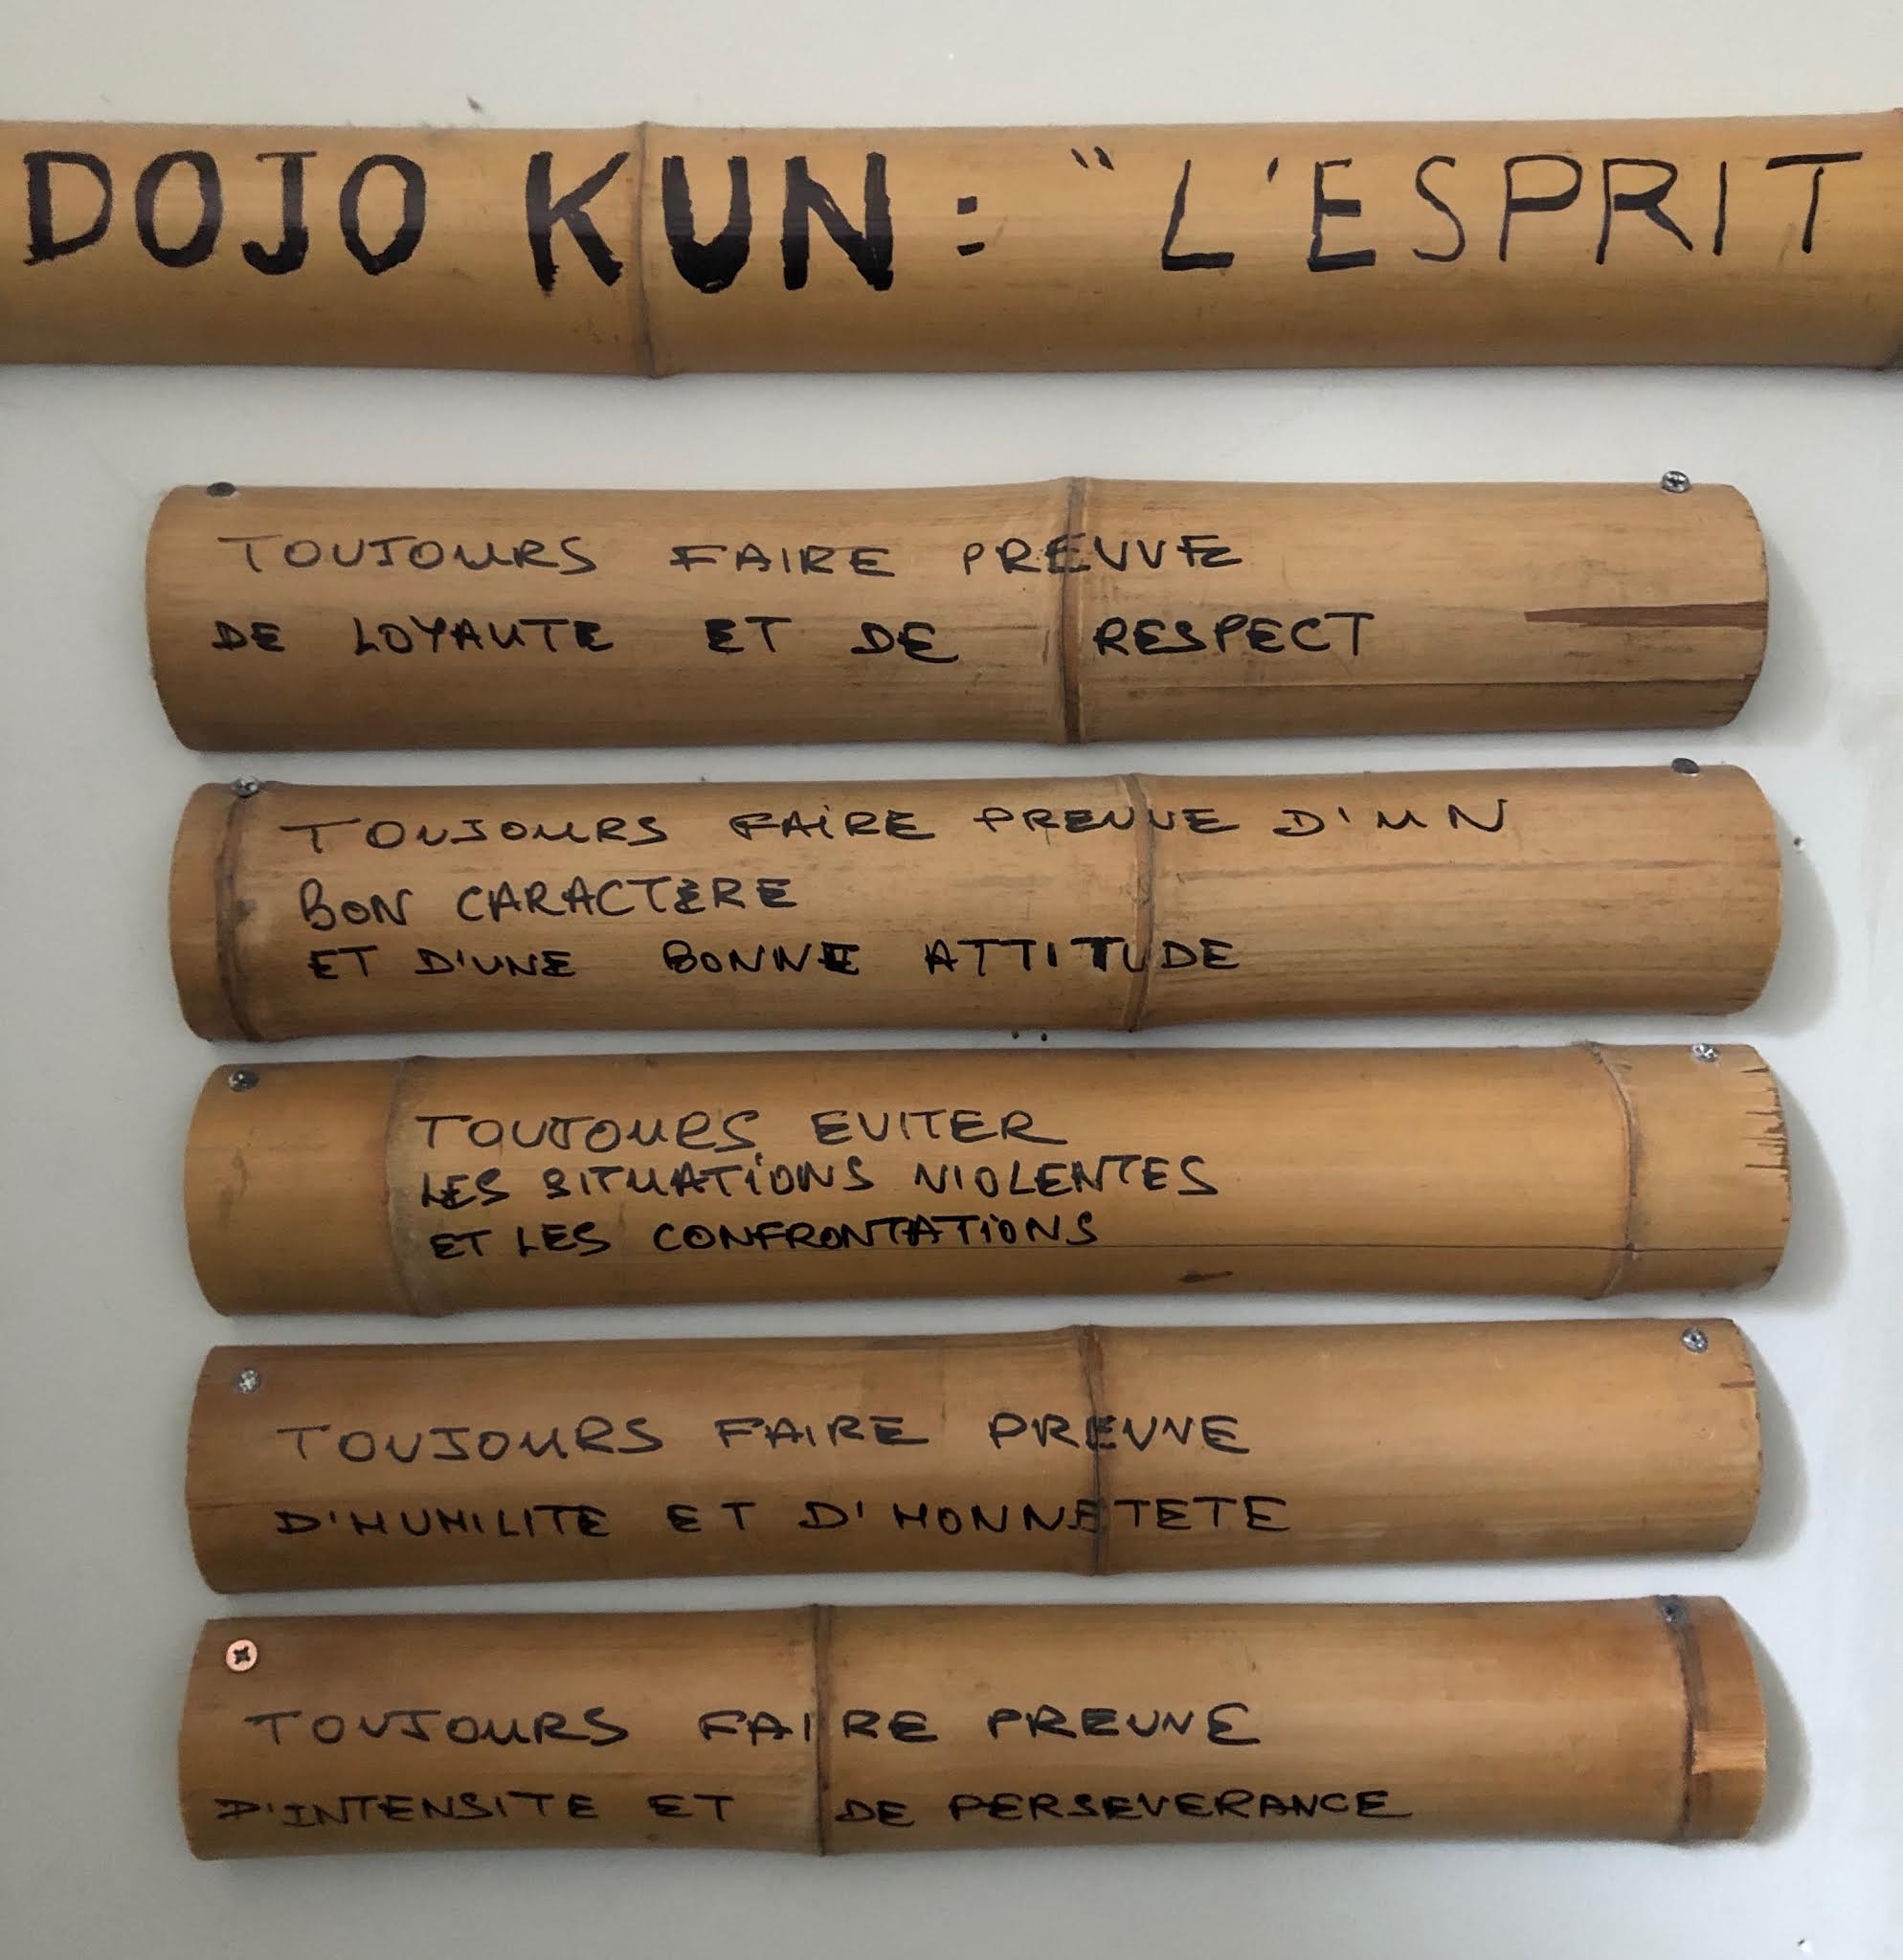 DOJO KUN : "L'ESPRIT
TOUJOURS FAIRE PREUVE
DE LOYAUTE ET DE RESPECT
TOUJOURS FAIRE PREUVE D'UN
BON CARACTÈRE
ET D'UNE BONNE ATTITUDE
TOUJOURS EVITER
LES SITUATIONS VIOLENTES
ET LES CONFRONTATIONS
TOUJOURS FAIRE PREUVE
D'HUMILITE ET D'HONNETETE
TOUJOURS FAIRE PREUVE
D'INTENSITE ET DE PERSEVERANCE